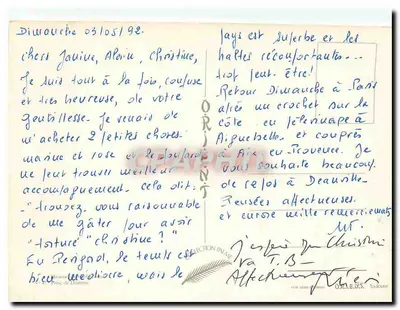 Dimanche 03/05/92.
Chers Janine, Alain, Christine,
Je suis tout à la fois, confuse
et très heureuse, de votre
gentillesse. Je venais de
m'acheter 2 petites choses
marine et rose et le foulard
ne peut trouver meilleur
accompagnement. Cela dit.
"trouvez vous raisonnable
de me gâter pour avoir
"torturé" Christine?"
En Périgord, le temps est
bien médiocre, mais le
pays est superbe et les
haltes réconfortantes...
trop peut-être!
Retour Dimanche à Paris
après un crochet sur la
côte en pélerinage à
Aiguebelle et auprès
à Aix en Provence. Je
vous souhaite beaucoup
de repos à Deauville.
Pensées affectueuses
et encore mille remerciements
J'espère que Christine
va T.B-
Affectueusement
ORIENT
COLLECTION